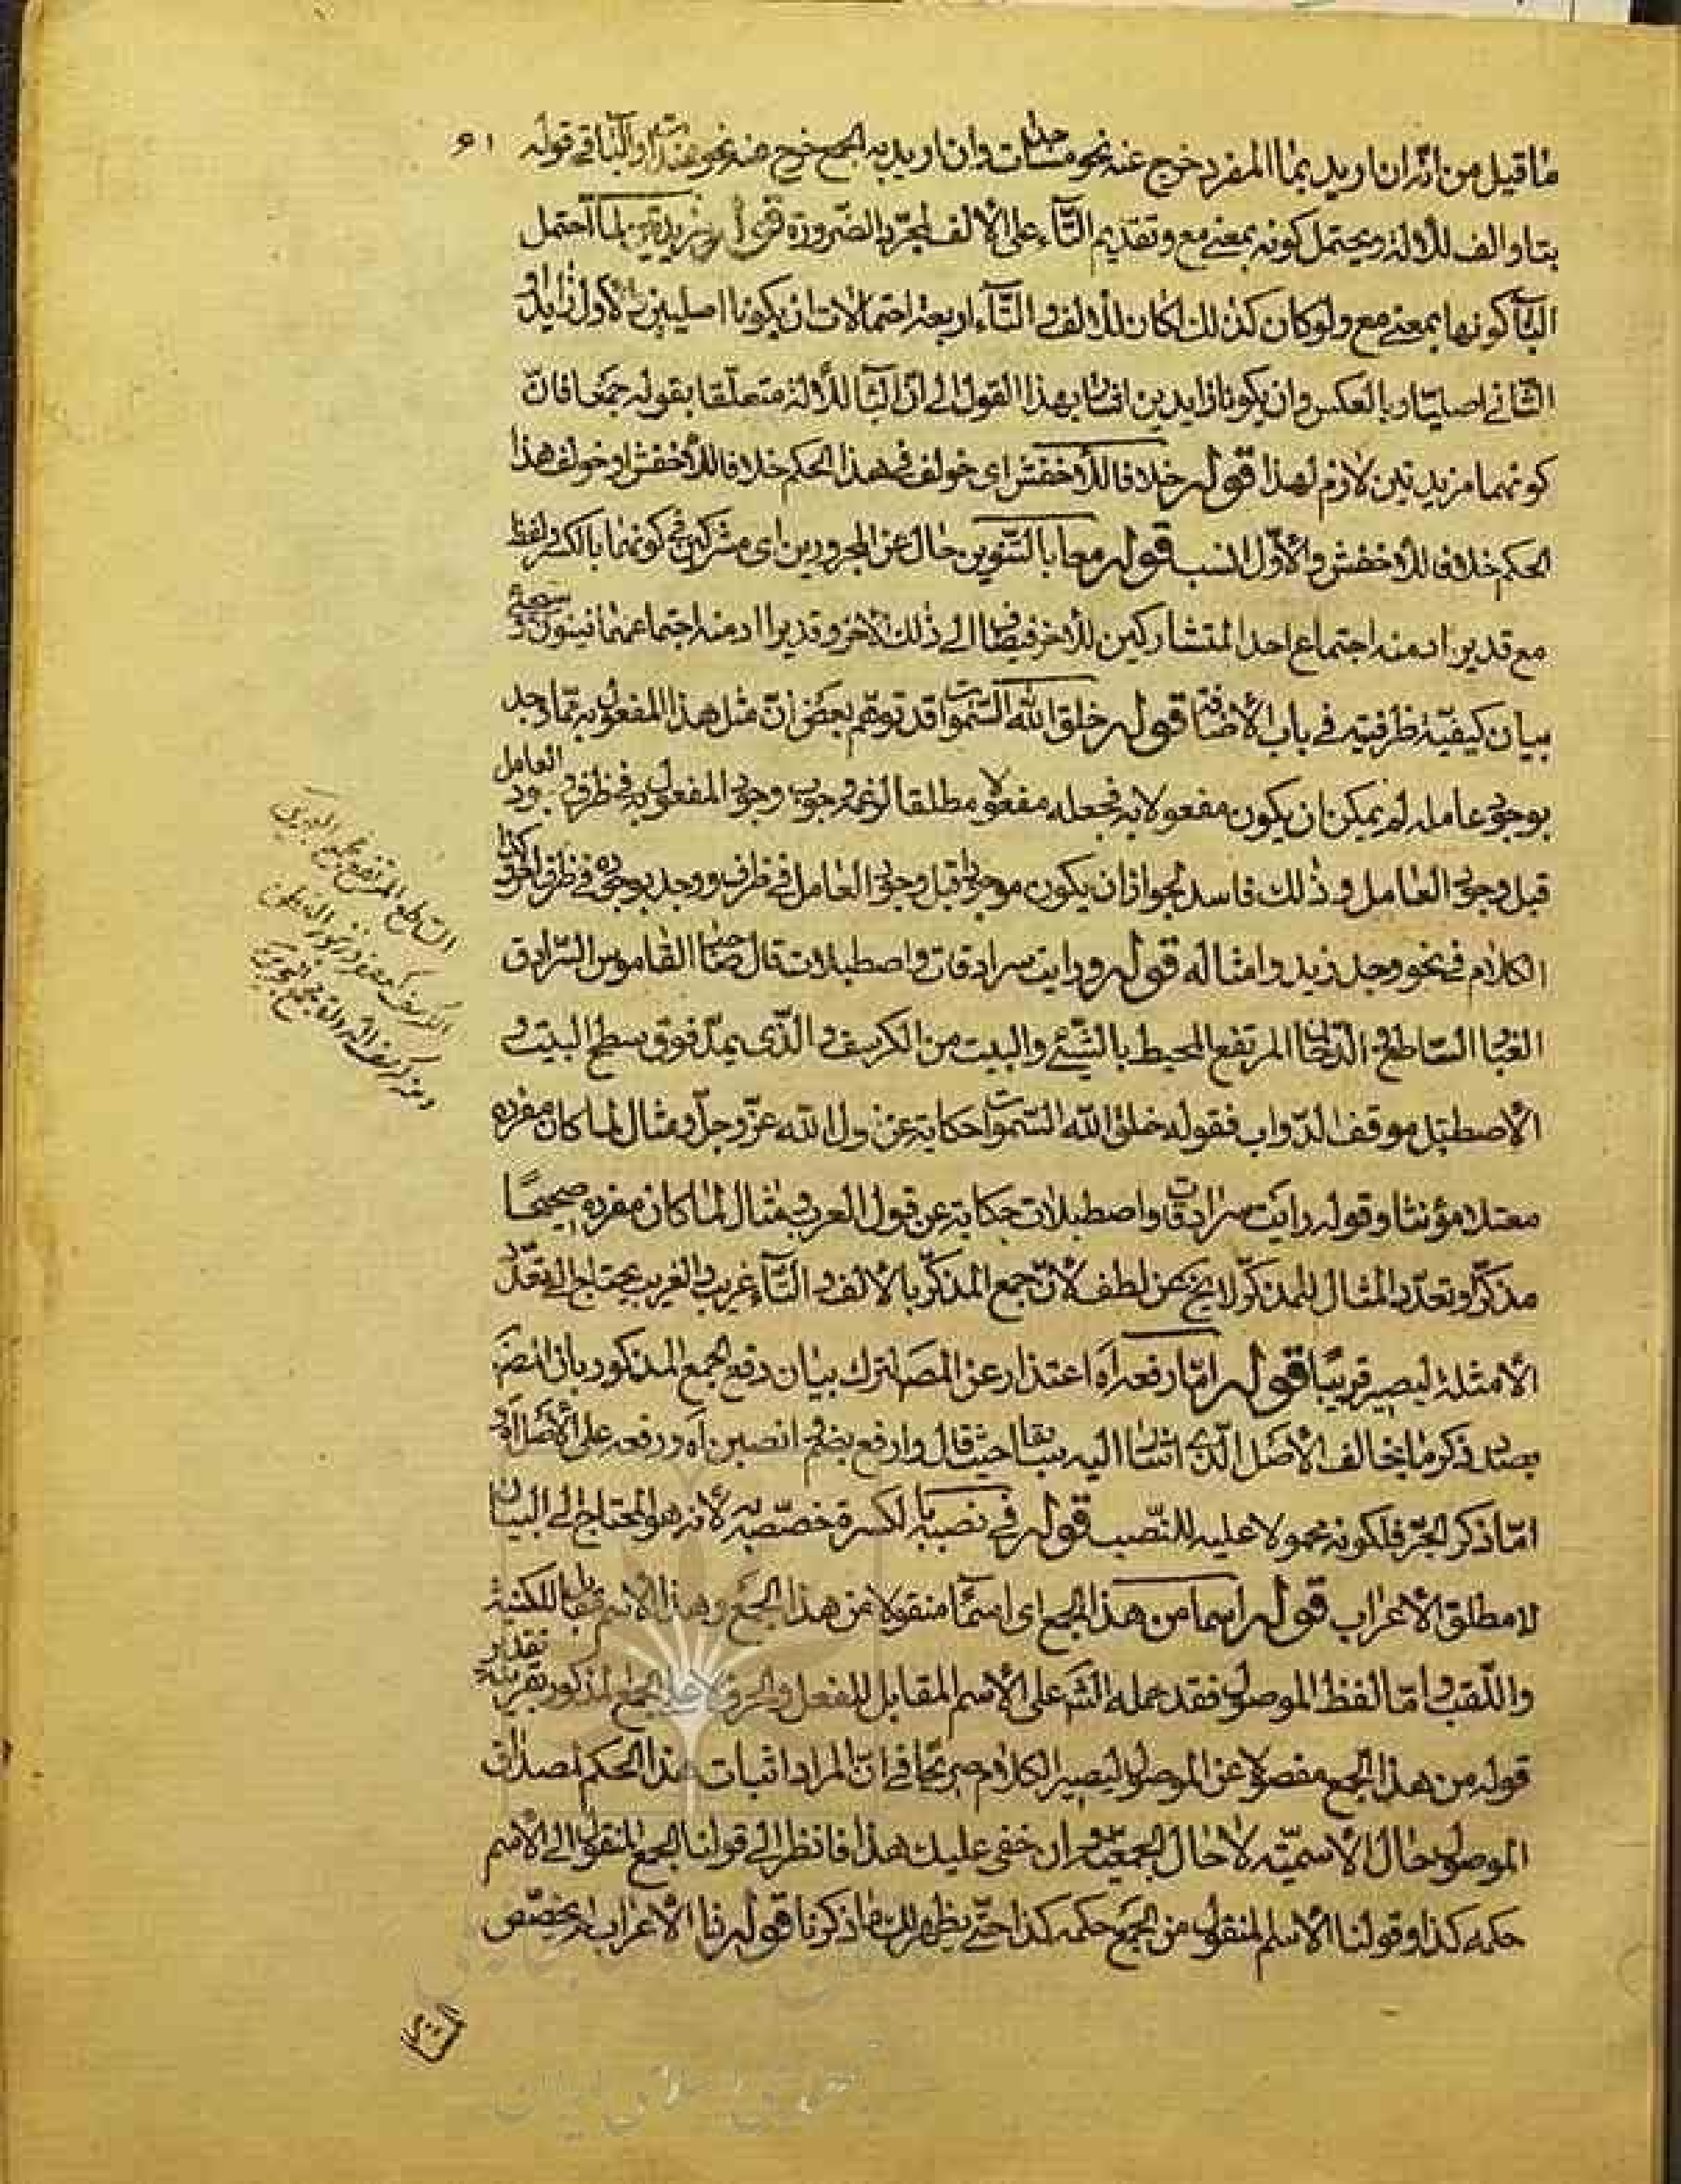 ما قيل من انه ان اريد بما المفرد خرج عنه نحو مسلمات وان اريد به الجمع خرج عنه نحو والباء في قوله ٦١
بتا والف للدلالة ويحتمل كونه بمعنى مع وتقديم التاء على الالف لمجرد الضرورة قوله مزيدتين لما احتمل
الباء كونها بمعنى مع ولو كان كذلك لكان للالف والتاء اربعة احتمالات ان يكونا اصليين والاول زايدا و
الثاني اصليا وبالعكس وان يكونا زايدين اشار بهذا القول الى ان الباء للدلالة متعلقا بقوله جمعا فان
كونهما مزيدتين لازم لهذا قوله خلافا للاخفش اى خولف في هذا الحكم خلافا للاخفش او خولف هذا
الحكم خلافا للاخفش والاول انسب قوله معا بالتنوين حال عن المجرورين اى مشتركين في كونهما بالكسر ولفظ
مع قد يراد منه اجتماع احد المتشاركين للاخر فيضاف الى ذلك الاخر وقد يراد منه اجتماعهما فينون و سيجئ
بيان كيفية ظرفيته في باب الاضافة قوله خلق الله السموات قد توهم بعض ان مثل هذا المفعول به مما وجد
بوجود عامله لم يمكن ان يكون مفعولا به فجعله مفعولا مطلقا لزعمه وجوب وجود المفعول به في ظرف وجود العامل
قبل وجود العامل و ذلك فاسد لجواز ان يكون موجودا قبل وجود العامل في ظرف ووجد بوجوده في ظرف اخر وكذا
الكلام في نحو وجد زيد وامثاله قوله ورايت سرادقات واصطبلات قال صاحب القاموس السرادق
الغبار الساطع والدخان المرتفع المحيط بالشئ والبيت من الكرسف والذى يمد فوق سطح البيت و
الاصطبل موقف الدواب فقوله خلق الله السموات حكاية عن قول الله عز وجل ومثال لما كان مفرده
معتلا مؤنثا وقوله رايت سرادقات واصطبلات حكاية عن قول العرب ومثال لما كان مفرده صحيحا
مذكرا وتعدد المثال للمذكر لا يخ عن لطف لان جمع المذكر بالالف والتاء غريب والغريب يحتاج الى تعدد
الامثلة ليصير قريبا قوله اما رفعه آه اعتذار عن المص لترك بيان رفع الجمع المذكور بان المصَ
بصدد ذكر ما يخالف الاصل الذى اشار اليه سابقا حيث قال وارفع بضم وانصبن آه ورفعه على الاصل
اما ذكر الجر فلكونه محمولا عليه للنصب قوله في نصبه بالكسرة خصصه به لانه هو المحتاج الى البيان
لا مطلق الاعراب قوله اسما من هذا الجمع اى اسما منقولا من هذا الجمع وهذا الاسم للكنية
واللقب واما لفظ الموصول فقد حمله الش على الاسم المقابل للفعل والحرف لا على الجمع المذكور بقرينة تقدير
قوله من هذا الجمع مفصولا عن الموصول ليصير الكلام صريحا في ان المراد اثبات هذا الحكم لمصداق
الموصول حال الاسمية لا حال الجمعية وان خفى عليك هذا فانظر الى قولنا الجمع المنقول الى الاسم
حكمه كذا وقولنا الاسم المنقول من الجمع حكمه كذا حتى يظهر لك ما ذكرنا قوله ذا الاعراب لم يخصص
الساطع المرتفع